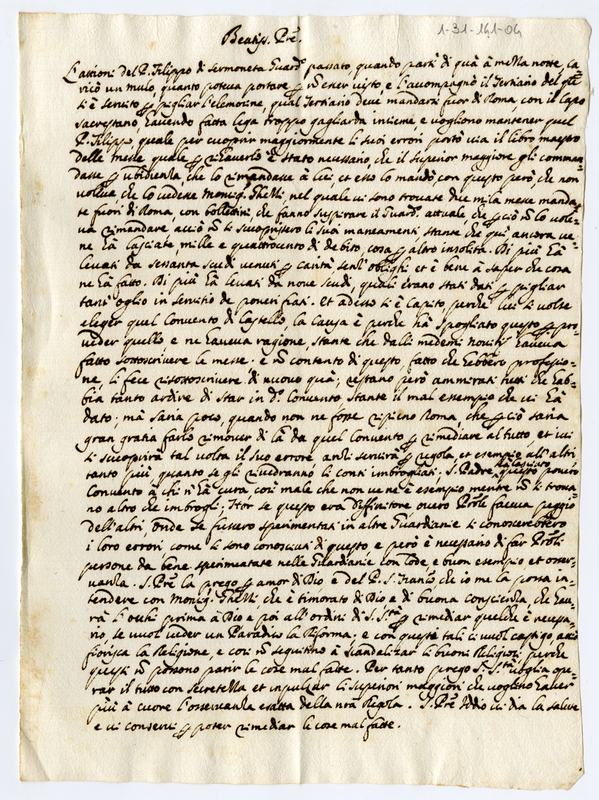 1-31-141-04
Beatiss. Pre.
L'attioni del P. Filippo di Sermoneta Guard. passato, quando partì di quà à mezza notte, ca
ricò un mulo, quanto poteva portare p nō esser visto, e l'accompagnò il Tertiario del qle
si è servito p pigliar l'elemosine, qual Tertiario deve mandarsi fuor di Roma, con il Capo
sacrestano, havendo fatta lega troppo gagliarda insieme, e vogliono mantener quel
P. Filippo, quale per cuoprir maggiormente li suoi errori portò via il libro maestro
delle messe quale p rihaverlo è stato necessario, che il superior maggiore gli comman
dasse p ubidienza, che lo rimandasse à lui, et esso lo mandò con questo però, che non
voleva, che lo vedesse Monsig. Ghezzi, nel quale vi sono trovate due mila messe manda
te fuori di Roma, con bollettini, che fanno suspirare il Guard. attuale che p ciò nō lo vole
va rimandare, acciò nō si scuoprissero li suoi mancamenti stante che quì ancora ve
ne hà lasciate, mille e quattrocento di debito, cosa p altro insolita. Di più hà
levati da sessanta scudi venuti p carità senz'oblighi et è bene à saper che cosa
ne hà fatto. Di più hà levati da nove scudi, quali erano stati dati p pigliar
tant'oglio in servitio de poveri frati. Et adesso si è capito, perche lui si volse
eleger quel Convento di Castello, la causa è perche hà spogliato questo p pro
veder quello, e ne haveva ragione, stante che dalli medemi novitij haveva
fatto sottoscrivere le messe. e nō contento di questo, fatto che hebbero professio
ne, li fece risottoscrivere di nuovo quà; restano però ammirati tutti che hab
bia tanto ardire di star in d.o Convento stante il mal essempio che vi hà
dato; mà saria poco, quando non ne fosse ripieno Roma, che p ciò saria
gran gratia farlo rimover di là da quel Convento p rimediare al tutto, et ivi
si scuoprirà tal volta il suo errore anzi servirà p regola, et esempio all'altri
tanto più, quanto se gli rivedranno li conti imbrogliati; S. Padre, questo povero
Convento à chi n'hà cura così male che non ve ne è esempio mentre nō si trova
no altro che imbrogli; Iter se questo era Diffinitore, overo Prōle faceva peggio
dell'altri onde se fussero sperimentati in altre Guardianie si conoscerebbero
i loro errori come si sono conosciuti di questo, e però è necessario di far Prōli
persone da bene sperimentate nelle Guardianie con lode, e buon esempio et osser
vanza. S. Pre la prego p amor di Dio e del P. S. Franco che io me la possa in
tendere con Monsig. Ghezzi, che è timorato di Dio e di buona conscienza, che hav
rà l'ochi prima à Dio e poi all'ordini di S. Stà p rimediar quelche è necessa
rio, se vuol veder un Paradiso la Riforma; e con questi tali ci vuol castigo, acciò
fiorisca la Religione, e così nō seguitino à scandalizar li buoni Religiosi, perche
questi nō possono patir le cose mal fatte. Per tanto prego S. Stà voglia ope
rar il tutto con secretezza et impulzar li superiori maggiori che voglino haver
più à cuore l'osservanza esatta della nrā Regola. S. Pre Iddio vi dia la salute
e vi conservi p poter rimediar le cose mal fatte.